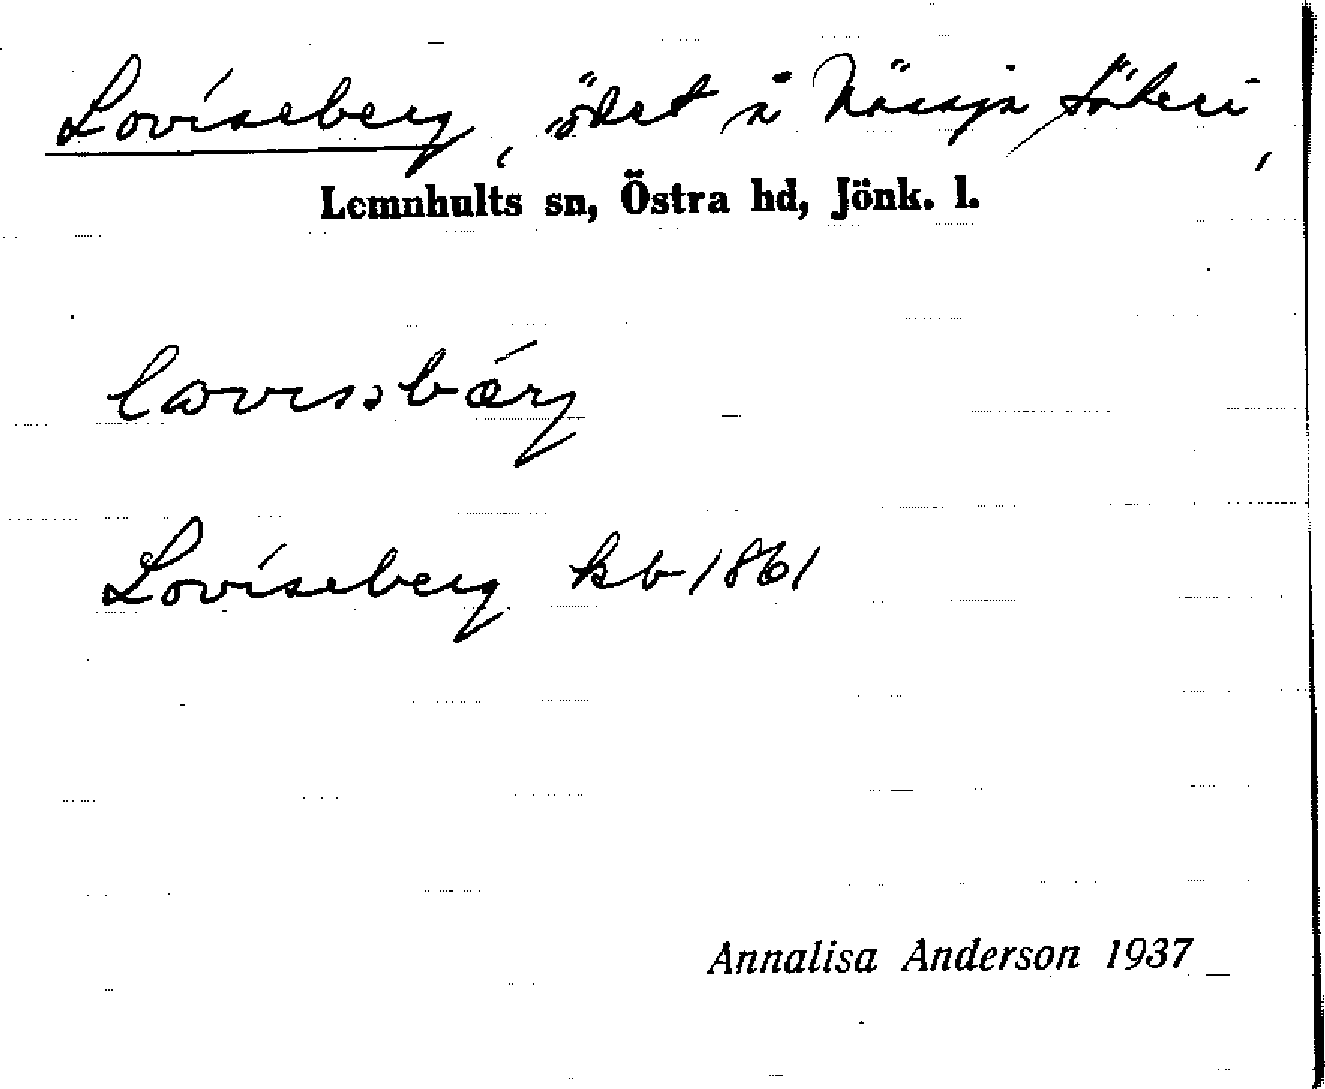 Loviseberg, ödet å Nässja säteri,
Lemnhults sn, Östra hd, Jönk. l.
Loviseberg kb 1861
Annalisa Anderson 1937